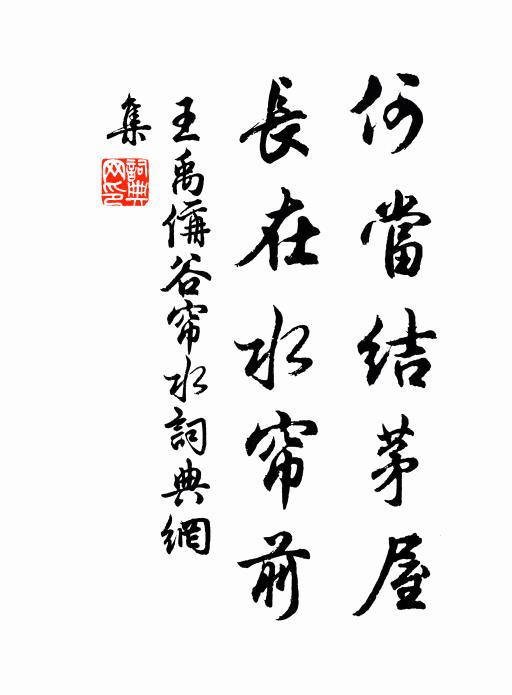 何當結茅屋
長在水帘前
王禹偁谷帘水詞典網
集
詞典網印